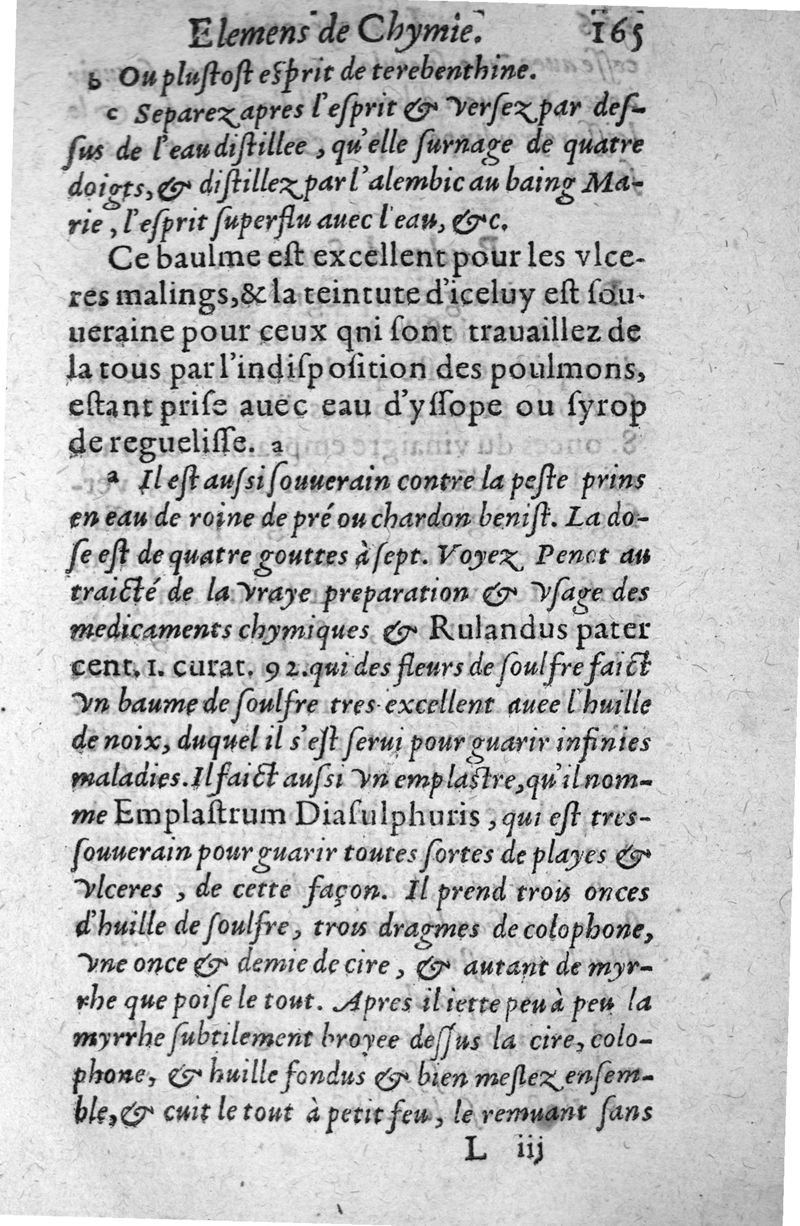 Elemens de Chymie. 165
b Ou pluſtoſt eſprit de terebenthine.
c Separez apres l'eſprit & verſez par deſ-
ſus de l'eau diſtillee, qu'elle ſurnage de quatre
doigts, & diſtillez par l'alembic au baing Ma-
rie, l'eſprit ſuperflu auec l'eau, &c.
Ce baulme eſt excellent pour les vlce-
res malings, & la teintute d'iceluy eſt ſou-
ueraine pour ceux qni ſont trauaillez de
la tous par l'indiſpoſition des poulmons,
eſtant priſe auec eau d'yſſope ou ſyrop
de regueliſſe. a
a Il eſt auſsi ſouuerain contre la peſte prins
en eau de roine de pré ou chardon beniſt. La do-
ſe eſt de quatre gouttes à ſept. Voyez Penot au
traicté de la vraye preparation & vſage des
medicaments chymiques & Rulandus pater
cent. 1. curat. 92. qui des fleurs de ſoulfre faict
vn baume de ſoulfre tres-excellent auee l'huille
de noix, duquel il s'eſt ſerui pour guarir infinies
maladies. Il faict auſsi vn emplaſtre, qu'il nom-
me Emplaſtrum Diaſulphuris, qui eſt tres-
ſouuerain pour guarir toutes ſortes de playes &
vlceres, de cette façon. Il prend trois onces
d'huille de ſoulfre, trois dragmes de colophone,
vne once & demie de cire, & autant de myr-
rhe que poiſe le tout. Apres il iette peu à peu la
myrrhe ſubtilement broyee deſſus la cire, colo-
phone, & huille fondus & bien meſlez enſem-
ble, & cuit le tout à petit feu, le remuant ſans
L iij